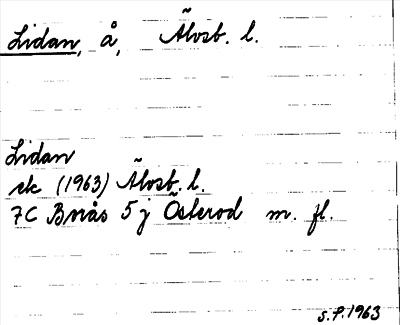 Lidan, å, Älvsb. l.
Lidan
ek (1963) Älvsb. l.
7C Borås 5 j Österod m. fl.
S.P. 1963